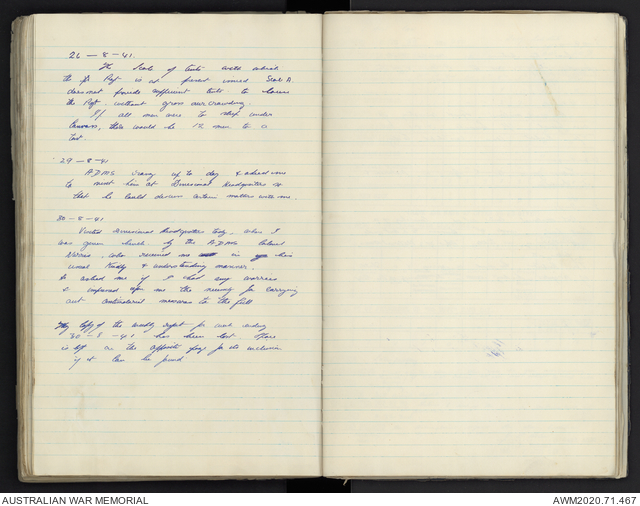 26 - 8 - 41.
The Scale of tents with which
the Regt is at present issued Scale A
does not provide sufficient tents to house
the Regt. without gross overcrowding.
If all men were to sleep under
Canvass, there would be 12 men to a
tent.
29 - 8 - 41
ADMS rang up to day & asked me
to meet him at Divisional Headquarters so
that he could discuss certain matters with me.
30 - 8 - 41
Visited Divisional Headquarters today, when I
was given lunch by the ADMS Colonel
who received me in his
usual kindly & understanding manner.
He asked me if I had any worries
& impressed upon me the necessity for carrying
out antimalarial measures to the full
My copy of the weekly report for week ending
30 - 8 - 41 has been lost. Space
is left on the opposite page for its inclusion
if it can be found
AUSTRALIAN WAR MEMORIAL
AWM2020.71.467